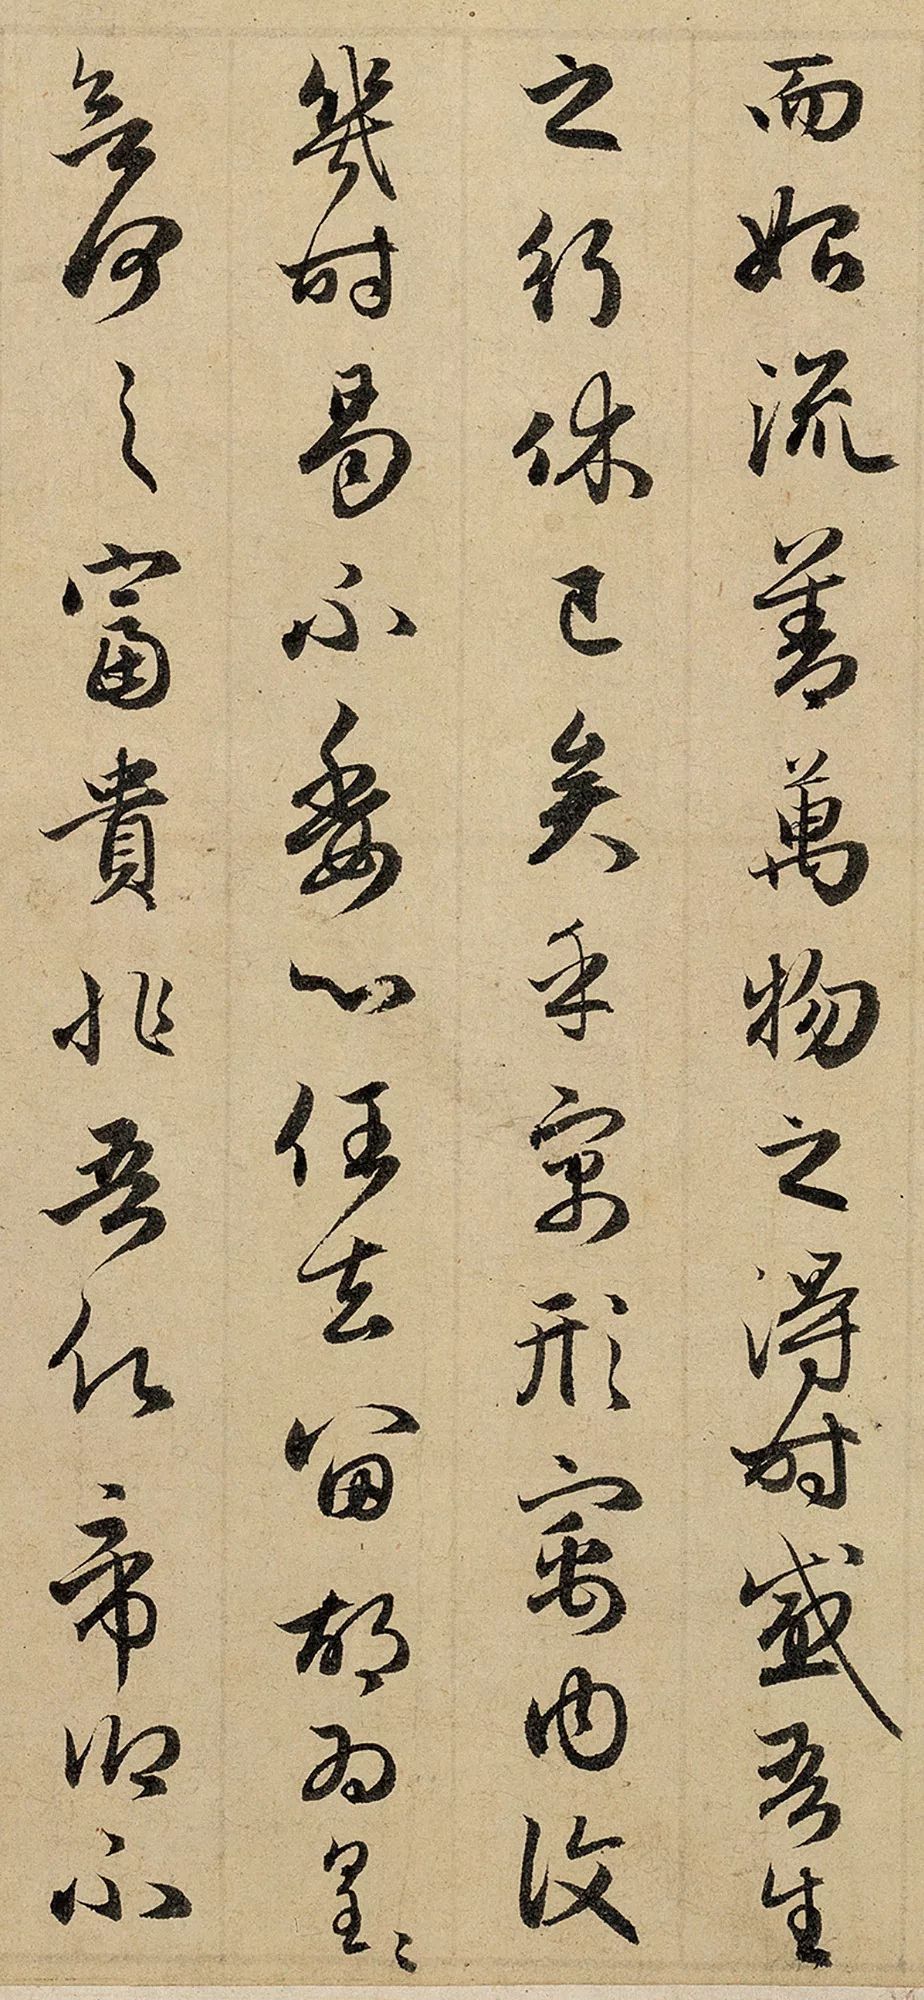 而始流善萬物之得時感吾生
之行休已矣乎寓形寓內復
幾時曷不委心任去留胡為皇〻
欲何之富貴非吾願帝鄉不